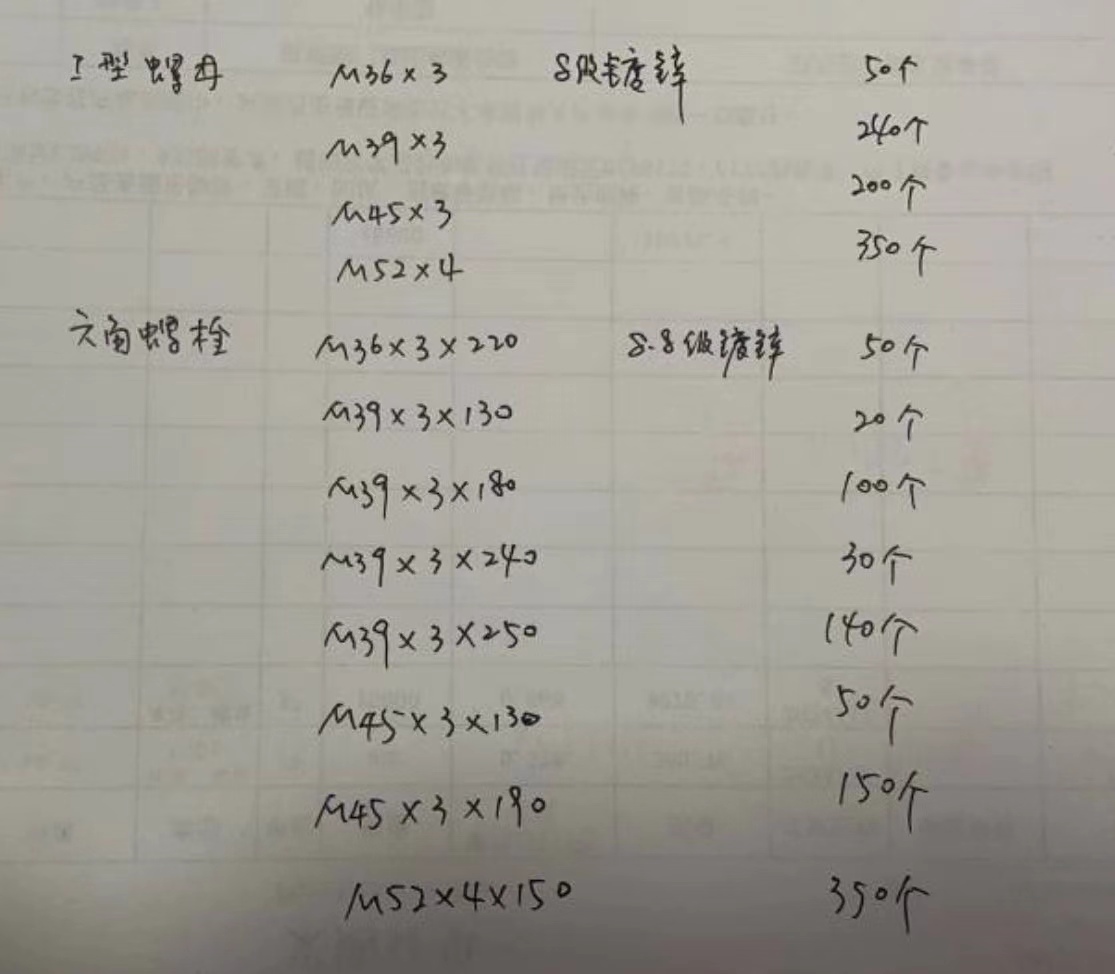 I型螺母 M36×3 8级镀锌 50个
M39×3 240个
M45×3 200个
M52×4 350个
六角螺栓 M36×3×220 8.8级镀锌 50个
M39×3×130 20个
M39×3×180 100个
M39×3×240 30个
M39×3×250 140个
M45×3×130 50个
M45×3×190 150个
M52×4×150 350个